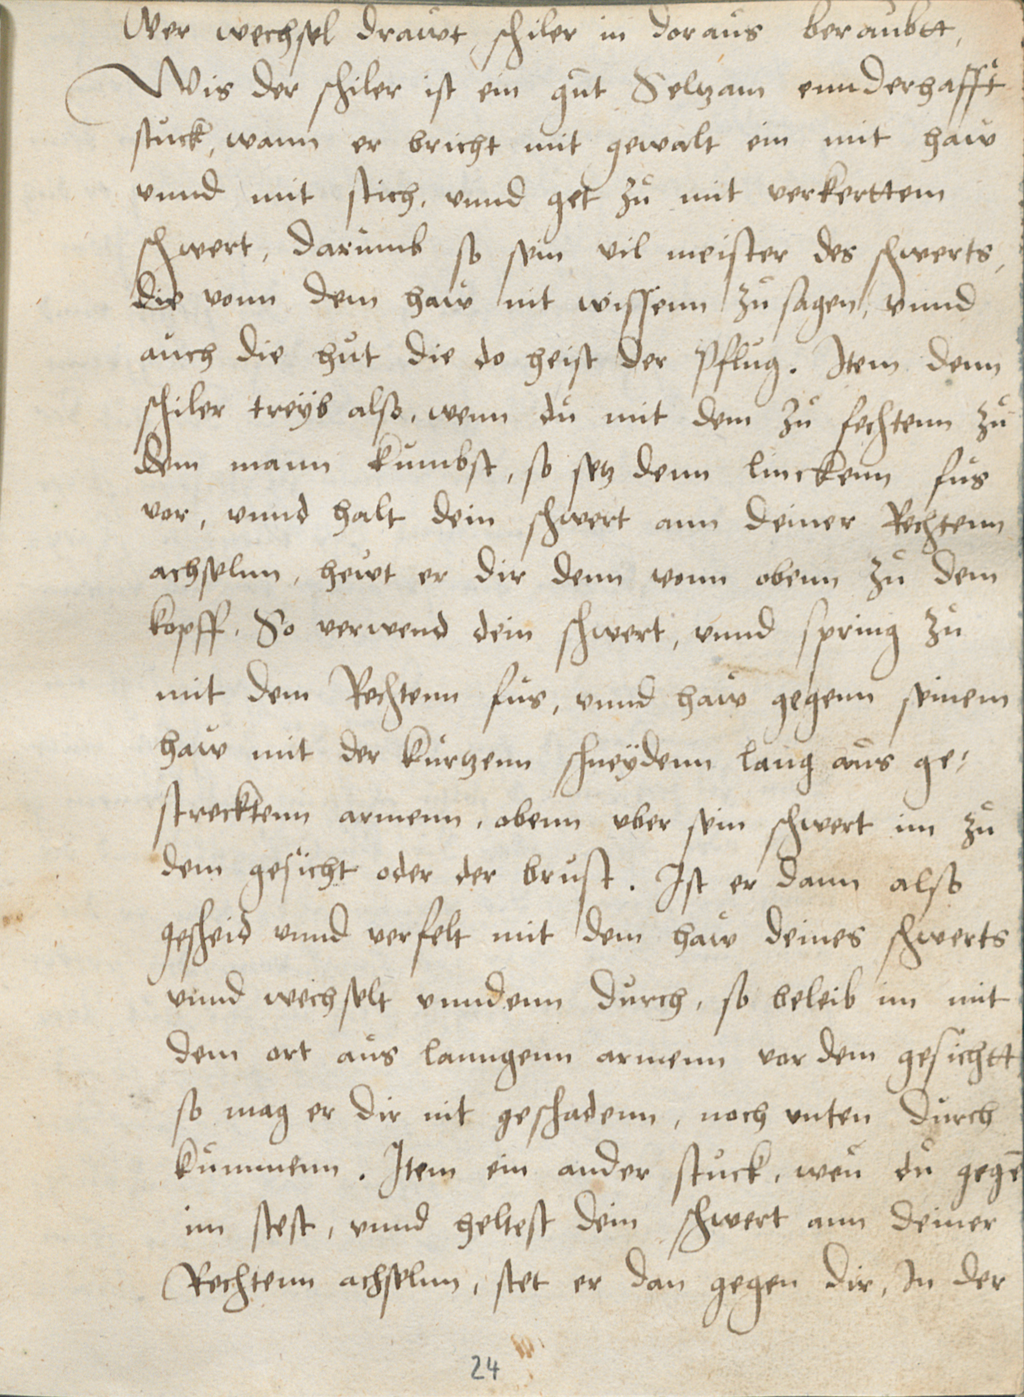 Wer wechsel drawt, schiler in doraus beraubtt,
Wis der schiler ist ein gut Seltzam ernnderhafftt
stuck, wann er bricht mit gewalt ein mit haw
vnnd mit stich, vnnd get zu mit verkerttem
schwert, darumb so sein vil meister des schwerts,
die vonn dem haw nit wissenn zu sagen, vnnd
auch die hut die do heist der Pflug. Item denn
schiler treyb also, wenn du mit dem zu fechtenn zu
dem mann kumbst, so setz denn linckenn fus
vor, vnnd halt dein schwert ann deiner Rechtenn
achselnn, hewt er dir denn vonn obenn zu dem
kopff. So verwend dein schwert, vnnd spring zu
mit dem Rechtenn fus, vnnd haw gegenn seinem
haw mit der kurtzenn schneydenn lang aus ge-
strecktenn armenn, obenn vber sein schwert im zu
dem gesicht oder der brust. Ist er dann also
gescheid vnnd verfelt mit dem haw deines schwerts
vnnd wechselt vnndenn durch, so beleib im mit
dem ort aus lanngenn armenn vor dem gesichtt
so mag er dir nit geschadenn, noch vnten durch
kummenn. Item ein ander stuck, wen du gegē
im stest, vnnd heltest dein schwert ann deiner
Rechtenn achselnn, stet er dan gegen dir, In der
24